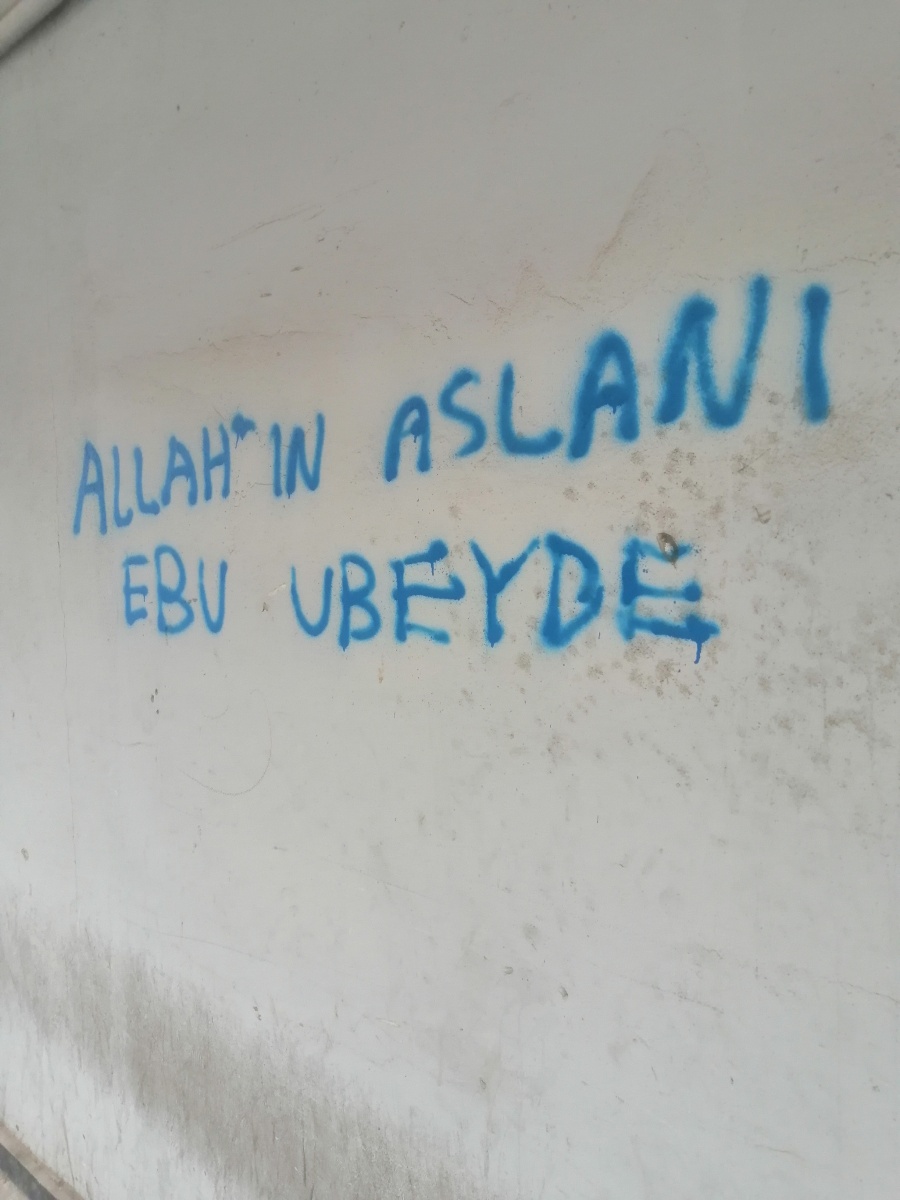 ALLAH'IN ASLANI
EBU UBEYDE